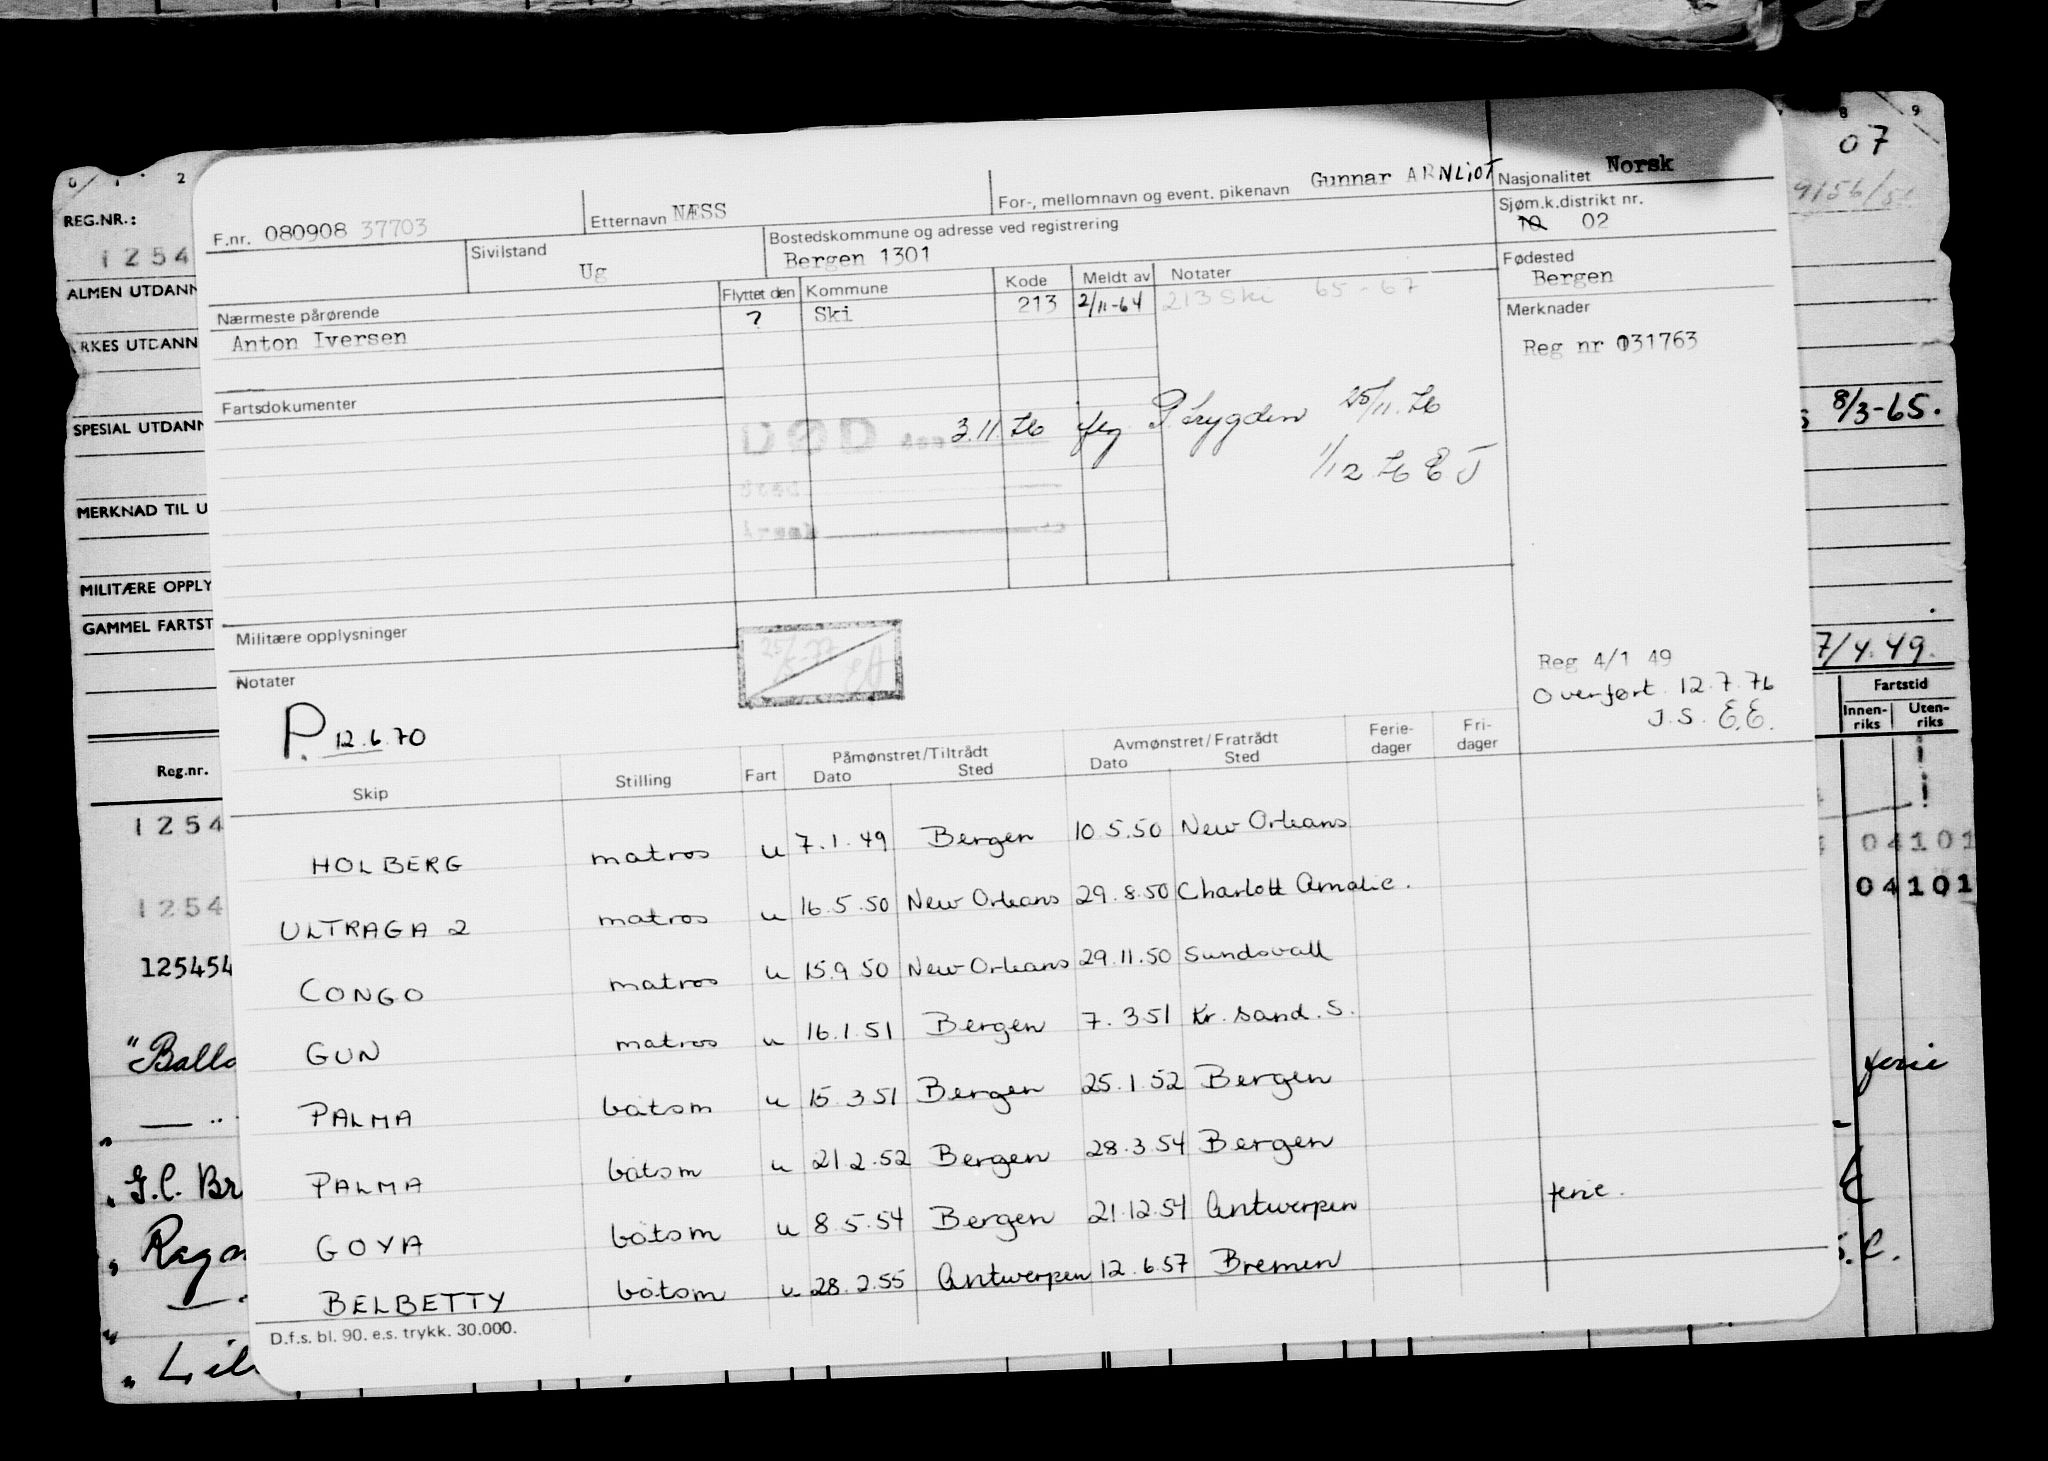 8 9
07
0 1 2
9156/5
REG.NR.:
1254
ALMEN UTDANN
RKES UTDANN
SPESIAL UTDANN
MERKNAD TIL U
MILITÆRE OPPLY
GAMMEL FARTST
Reg.nr.
1254
1254
125454
"Balla
— " —
" G.C. Br
" Ragn
" Lil
F.nr. 080908 37703
Etternavn NÆSS
For-, mellomnavn og event. pikenavn Gunnar ARNLIOT
Nasjonalitet Norsk
Sjøm.k.distrikt nr.
10 02
Sivilstand
Ug
Bostedskommune og adresse ved registrering
Bergen 1301
Fødested
Bergen
Nærmeste pårørende
Anton Iversen
Flyttet den Kommune Kode Meldt av Notater
? Ski 213 2/11-64 213 Ski 65-67
Merknader
Reg nr 031763
Fartsdokumenter
DØD 3.11.76 flg P Trygden 25/11.76
1/12 76 E J
8/3-65.
Militære opplysninger
Reg 4/1 49
Overført 12.7.76
J.S. E.E.
7/4.49.
Notater
P. 12.6.70
25/5-77
Fartstid
Innen-riks Uten-riks
Skip Stilling Fart Påmønstret/Tiltrådt Dato Sted Avmønstret/Fratrådt Dato Sted Ferie-dager Fri-dager
HOLBERG matros u 7.1.49 Bergen 10.5.50 New Orleans
ULTRAGA 2 matros u 16.5.50 New Orleans 29.8.50 Charlott Amalie.
CONGO matros u 15.9 50 New Orleans 29.11.50 Sundsvall
GUN matros u 16.1.51 Bergen 7.3 51 Kr. sand. S.
PALMA båtsm u 15.3 51 Bergen 25.1.52 Bergen
PALMA båtsm u 21 2.52 Bergen 28.3.54 Bergen
GOYA båtsm u 8.5.54 Bergen 21.12.54 Antwerpen ferie.
BELBETTY båtsm u 28.2.55 Antwerpen 12.6.57 Bremen
D.f.s. bl. 90. e.s. trykk. 30.000.
04101
04101
ferie